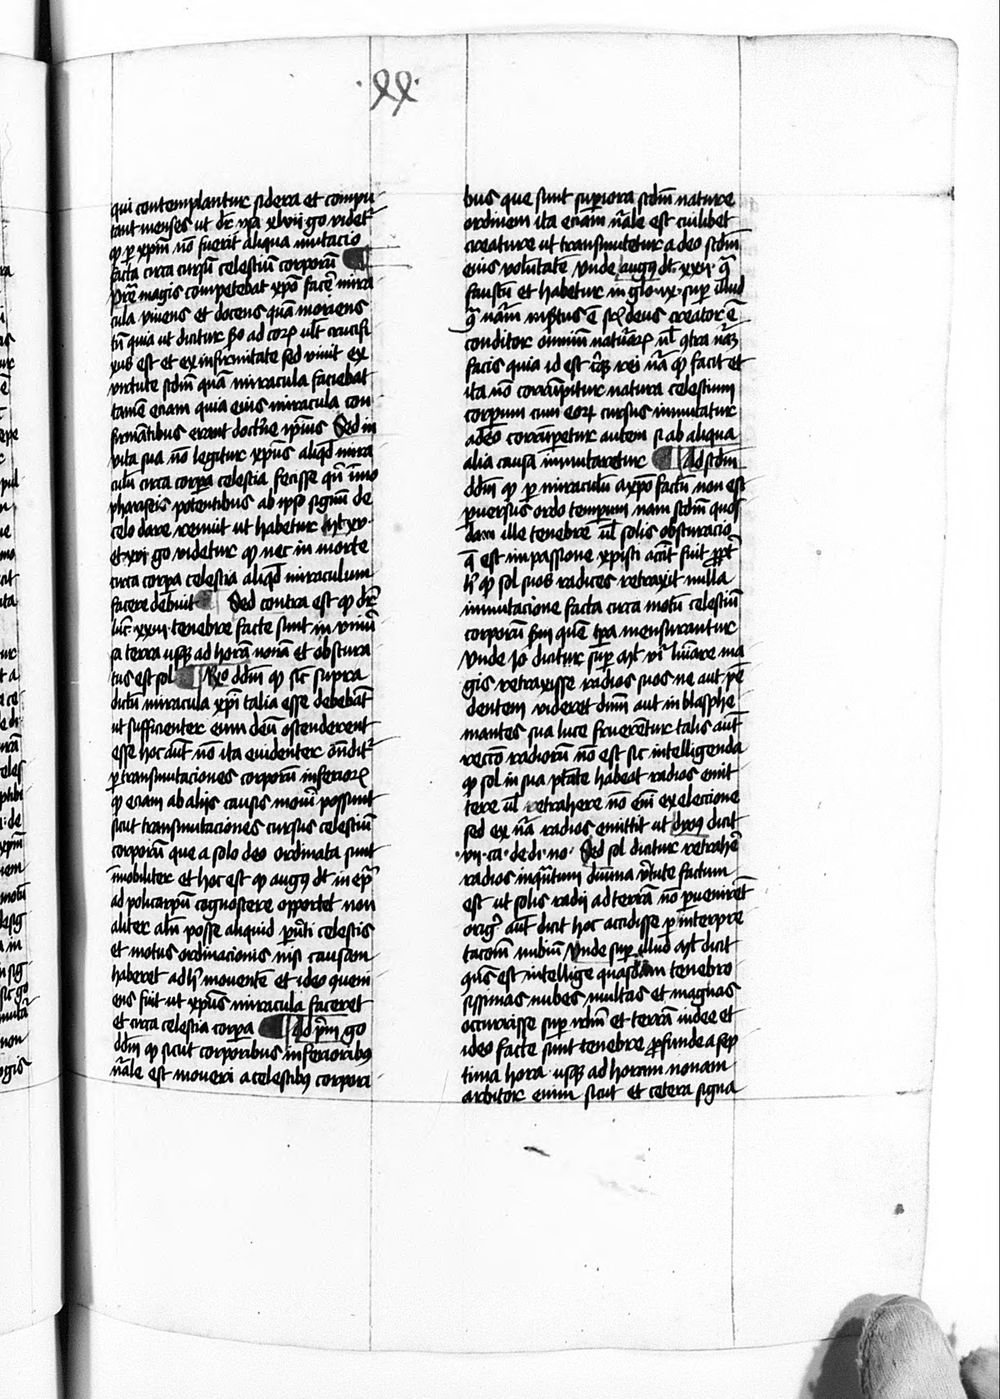 ·xx·
qui contemplantur sidera et compu
tant menses ut dr̄ ysa xlvii go videtr̄
qp per xpm̄ nō fuerit aliqua mutacio
facta circa cursū celestiū corporū
Pret̄ magis competebat xpō facēe mira
cula vivens et docens quā moriens
tū quia ut dicitur ad corꝫ ult crucifi
xus est et ex infirmitate sed vivit ex
virtute scdm̄ quā miracula faciebat
tamē eciam quia eius miracula con
firmātibus erant doctīe ipsius Sed in
vita sua nō legitur xpūs aliqd̄ mira
culū circa corpa celestia fecisse qn̄ īmo
phariseis potentibus ab ipso signū de
celo dare renuit ut habetur mt xv·
et xvi go videtur qp nec in morte
circa corpa celestia aliqd̄ miraculum
facere debuit Sed contra est qp dr̄
luc̄ xxiii tenebre facte sunt in univer̄
sa terra usqꝫ ad horā nonā et obscura
tus est sol Rn̄o ddm̄ qp sic supra
dictū miracula xpī talia esse debebāt
ut sufficienter eum deū ostenderent
esse hoc aūt nō ita evidenter ōnditr̄
p transmutaciones corporū inferioꝝ
qp eciam ab alijs causis moūi possunt
sicut transmutaciones cursus celestiū
corporū que a solo deo ordinata sunt
īmobiliter et hoc est qp augꝰ dt̄ in ep̄
ad policarpū cognoscere opportet non
aliter alin̄ posse aliquid pūti celestis
et motus ordinacionis nisi causam
haberet ad h̄ movente et ideo queni
ens fuit ut xpūs miracula faceret
et circa celestia corpa Ad p̄m go
ddm̄ qp sicut corporibus inferioribꝰ
nāle est moveri a celestibꝰ corpori
bus que sunt superiora scdm̄ nature
ordinem ita eciam nāle est cuilibet
creature ut transmutetur a deo scdm̄
eius voluntatē Unde augꝰ dt̄ xxvi· ꝯ̄
faustū et habetur in glo· ix· sup illud
ꝯ̄ nām insitus ē scꝫ deus creator ē
conditor omnium natūraꝝ nl̄ ꝯtra nāꝫ
facis quia id est cūqꝫ rei nā qp facit et
ita nō corrūpitur natura celestium
corpum cum eorꝝ cursus immutatur
a deo corrūpetur autem si ab aliqua
alia causa īmutaretur Ad scdm̄
ddm̄ qp p miraculū a xpō factū non est
pversus ordo tempum nam scdm̄ quos
dam ille tenebre ul̄ solis obscuracio
q̄ est in passione xpisti accīt fuit ꝓpt̄
h̄ qp sol suos radios retraxit nulla
immutacione facta circa motū celestiū
corporū s̄m quē tpa mensurantur
Unde Jo dicitur sup mt vr̄ luminare ma
gis retraxisse radios suos ne aut pē
dentem videret dnm̄ aut in blasphe
mantes sua luce fruerētur talis aūt
reccō radiorū nō est sic intelligenda
qp sol in sua ptāte habeat radios emit
tere ul̄ retrahere nō em̄ ex eleccione
sed ex nā radios emittit ut dyoꝰ dicit
·iiii· ca· de di· no· Sed sol dicitur retrahē
radios inqūtum divina v̄tute factum
est ut solis radii ad terrā nō pvenirēt
orig̃ aūt dicit hoc accidisse p interpre
tacōm nubiū Unde sup illud mt dicit
qūs est intellige quasdam tenebro
sissimas nubes multas et magnas
occurrisse sup irlm̄ et terrā iudee et
ideo facte sunt tenebre ꝓfunde a sep
tima hora usqꝫ ad horam nonam
arbitor enim sicut et cetera signa